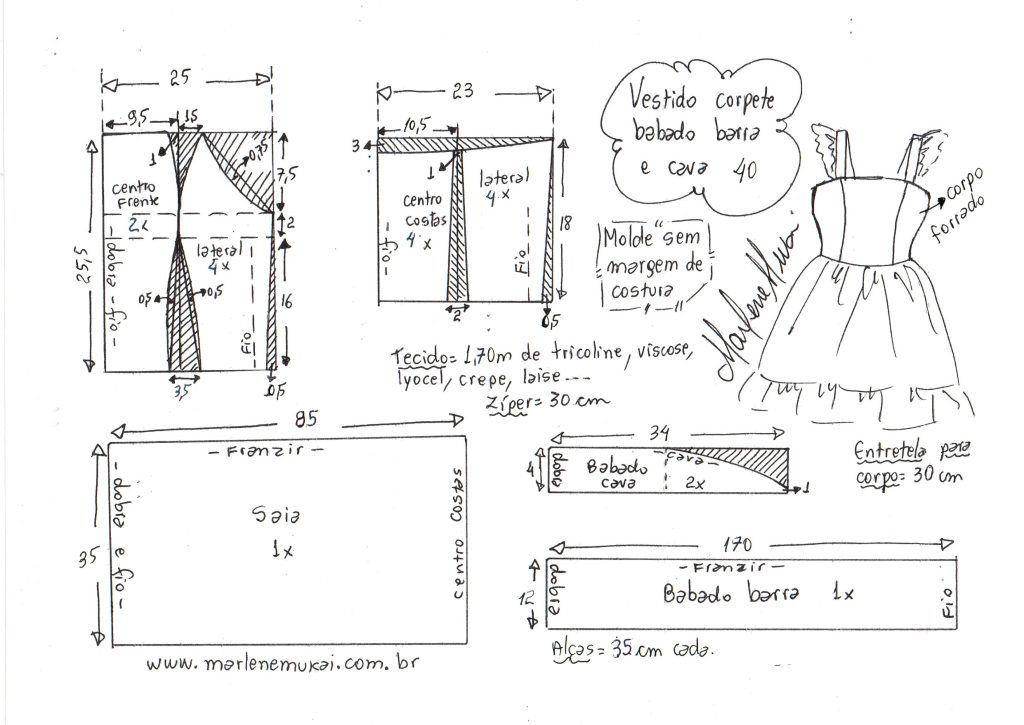 25
9,5
15
1
0,75
7,5
centro
Frente
2x
2
25,5
- dobra - fio -
lateral
4x
0,5
0,5
16
Fio
35
0,5
23
10,5
3
1
centro
costas
4x
lateral
4x
18
- fio -
Fio
2
0,5
Vestido corpete
babado barra
e cava 40
Molde sem
margem de
costura
Marlene Mukai
corpo
forrado
Tecido = 1,70m de tricoline, viscose,
lyocel, crepe, laise ---
Zíper = 30 cm
85
- Franzir -
- dobra e fio -
Saia
1x
35
centro costas
34
4
dobra
Babado
cava
cava -
2x
1
Entretela para
corpo = 30 cm
170
- Franzir -
12
dobra
Babado barra 1x
Fio
Alças = 35 cm cada.
www.marlenemukai.com.br